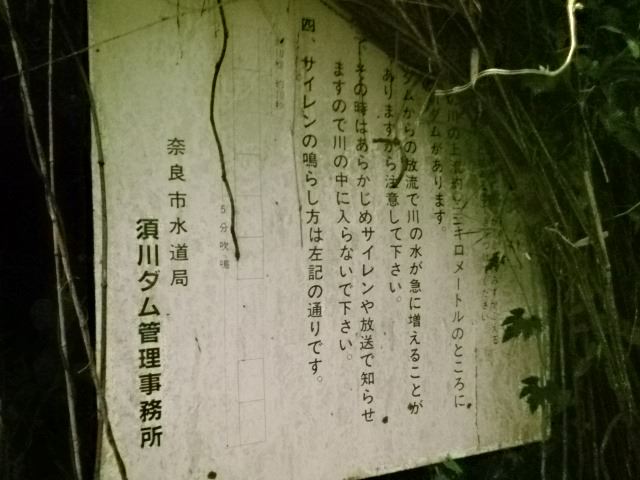 川の上流約三キロメートルのところに
ダムがあります。
ダムからの放流で川の水が急に増えることが
ありますから注意して下さい。
その時はあらかじめサイレンや放送で知らせ
ますので川の中に入らないで下さい。
四、サイレンの鳴らし方は左記の通りです。
5分吹鳴
奈良市水道局
須川ダム管理事務所